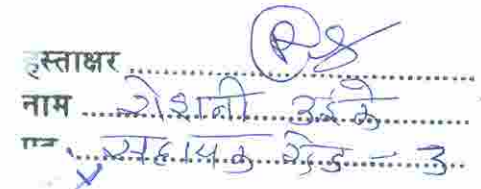 हस्ताक्षर ..............................
नाम ..रोशनी उईके..
पद ..सहायक ग्रेड - 3..